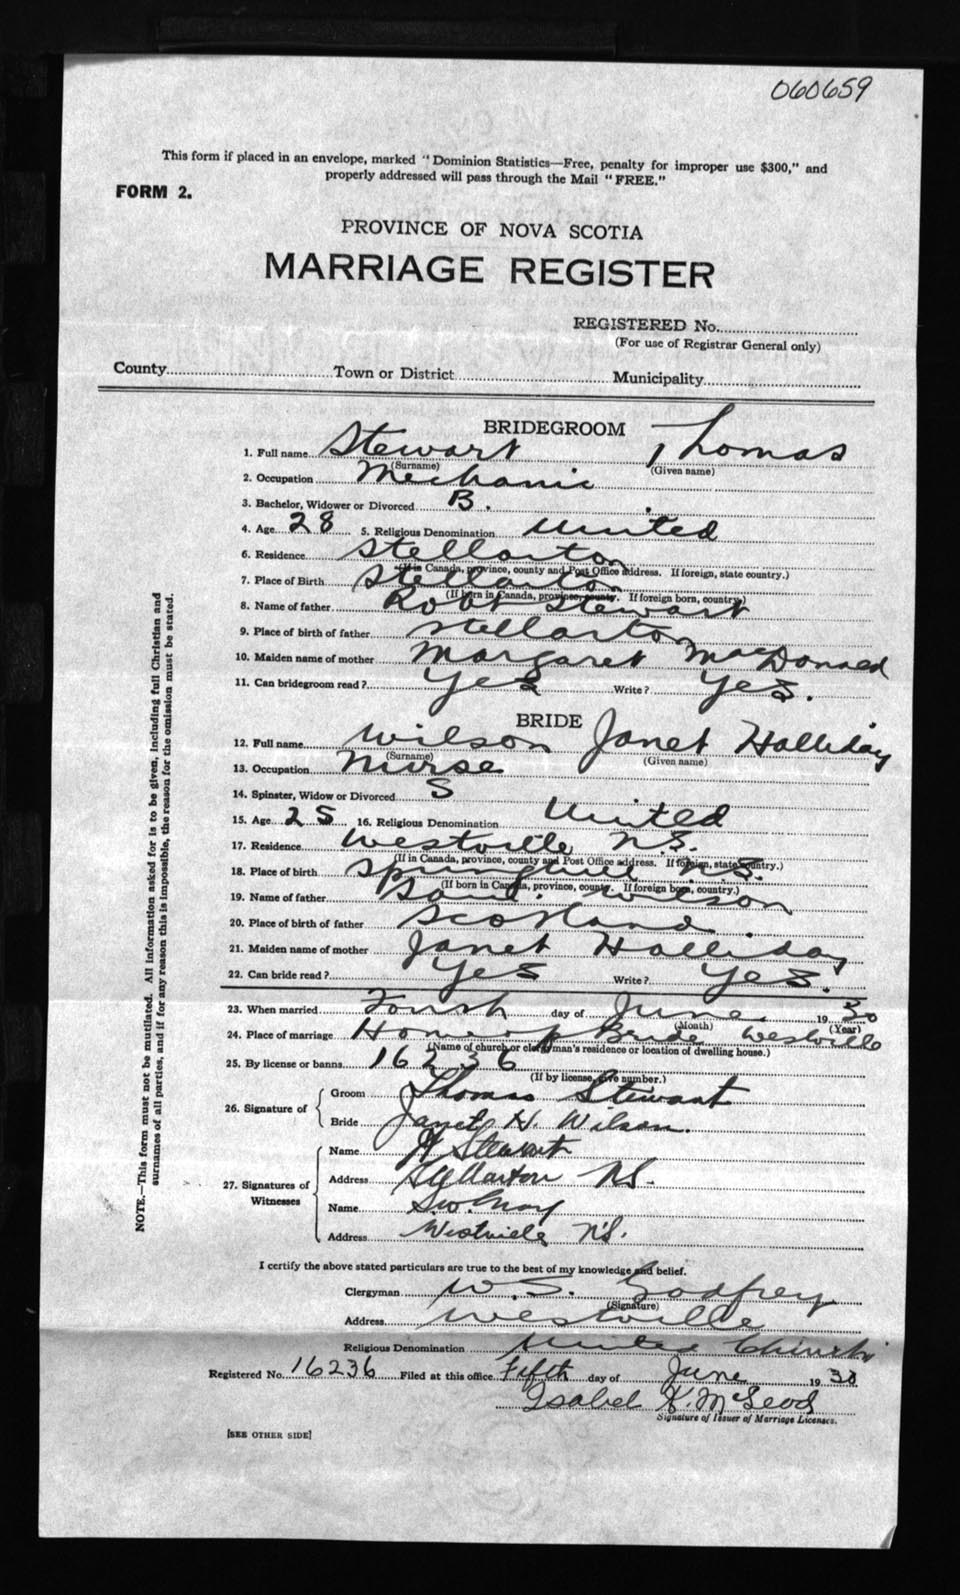 060659
This form if placed in an envelope, marked "Dominion Statistics—Free, penalty for improper use $300," and
properly addressed will pass through the Mail "FREE."
FORM 2.
PROVINCE OF NOVA SCOTIA
MARRIAGE REGISTER
REGISTERED No.
(For use of Registrar General only)
County Town or District Municipality
BRIDEGROOM
1. Full name Stewart Thomas
(Surname) (Given name)
2. Occupation Mechanic
3. Bachelor, Widower or Divorced B.
4. Age 28 5. Religious Denomination United
6. Residence Stellarton
(If in Canada, province, county and Post Office address. If foreign, state country.)
7. Place of Birth Stellarton
(If born in Canada, province, county. If foreign born, country)
8. Name of father Robt Stewart
9. Place of birth of father Stellarton
10. Maiden name of mother Margaret MacDonald
11. Can bridegroom read? Yes Write? Yes.
BRIDE
12. Full name Wilson Janet Halliday
(Surname) (Given name)
13. Occupation Nurse
14. Spinster, Widow or Divorced S
15. Age 25 16. Religious Denomination United
17. Residence Westville N.S.
(If in Canada, province, county and Post Office address. If foreign, state country.)
18. Place of birth Springhill N.S.
(If born in Canada, province, county. If foreign born, country)
19. Name of father Wilson
20. Place of birth of father Scotland.
21. Maiden name of mother Janet Halliday
22. Can bride read? Yes Write? Yes.
23. When married Fourth day of June 1930
(Month) (Year)
24. Place of marriage Home of Bride Westville
(Name of church or clergyman's residence or location of dwelling house.)
25. By license or banns 16236
(If by license, give number.)
26. Signature of
Groom Thomas Stewart
Bride Janet H. Wilson.
27. Signatures of Witnesses
Name Stewart
Address Stellarton NS.
Name S.W. Gray
Address Westville N.S.
I certify the above stated particulars are true to the best of my knowledge and belief.
Clergyman W. S. Godfrey
(Signature)
Address Westville
Religious Denomination United Church
Registered No. 16236 Filed at this office Fifth day of June 1930
Isabel K. McLeod
Signature of Issuer of Marriage Licenses.
[SEE OTHER SIDE]
NOTE.—This form must not be mutilated. All information asked for is to be given, including full Christian and
surnames of all parties, and if for any reason this is impossible, the reason for the omission must be stated.